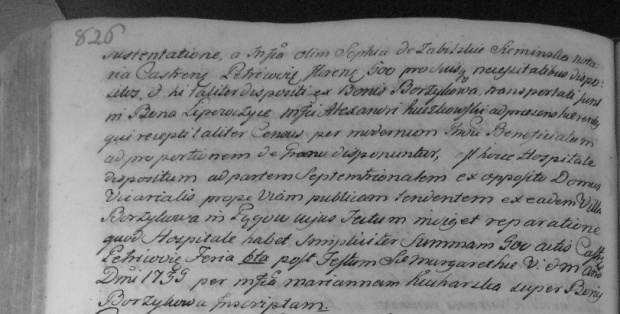 826
sustentatione, a Mfca olim Sophia de Zabilskie Sieminska nota
ria Castrens Petricovie florens 600 pro suis necessitatibus dispo
sitos, & hi taliter dispositi ex Bonis Borzykowa, transportati sunt
in Bona Lipowczyce Mfci Alexandri Kuczkowski ad praesens haeredis
qui recepti taliter Census per modernum Beneficiatum
ad proportionem de Granu disponuntur, est hocce Hospitale
dispositum ad partem Septemtrionalem ex opposito Domus
Vicarialis prope Viam publicam tendentem ex eadem Villa
Borzykowa in cujus Tectum indiget reparatione
quod Hospitale habet simpliciter Summam 600 actis Cast
Petricovie Feria 6ta post Festum S Margarethae V. & M. Ano
Dni 1759 per Mfca Mariannam Kucharska super Bonis
Borzykowa Inscriptam.